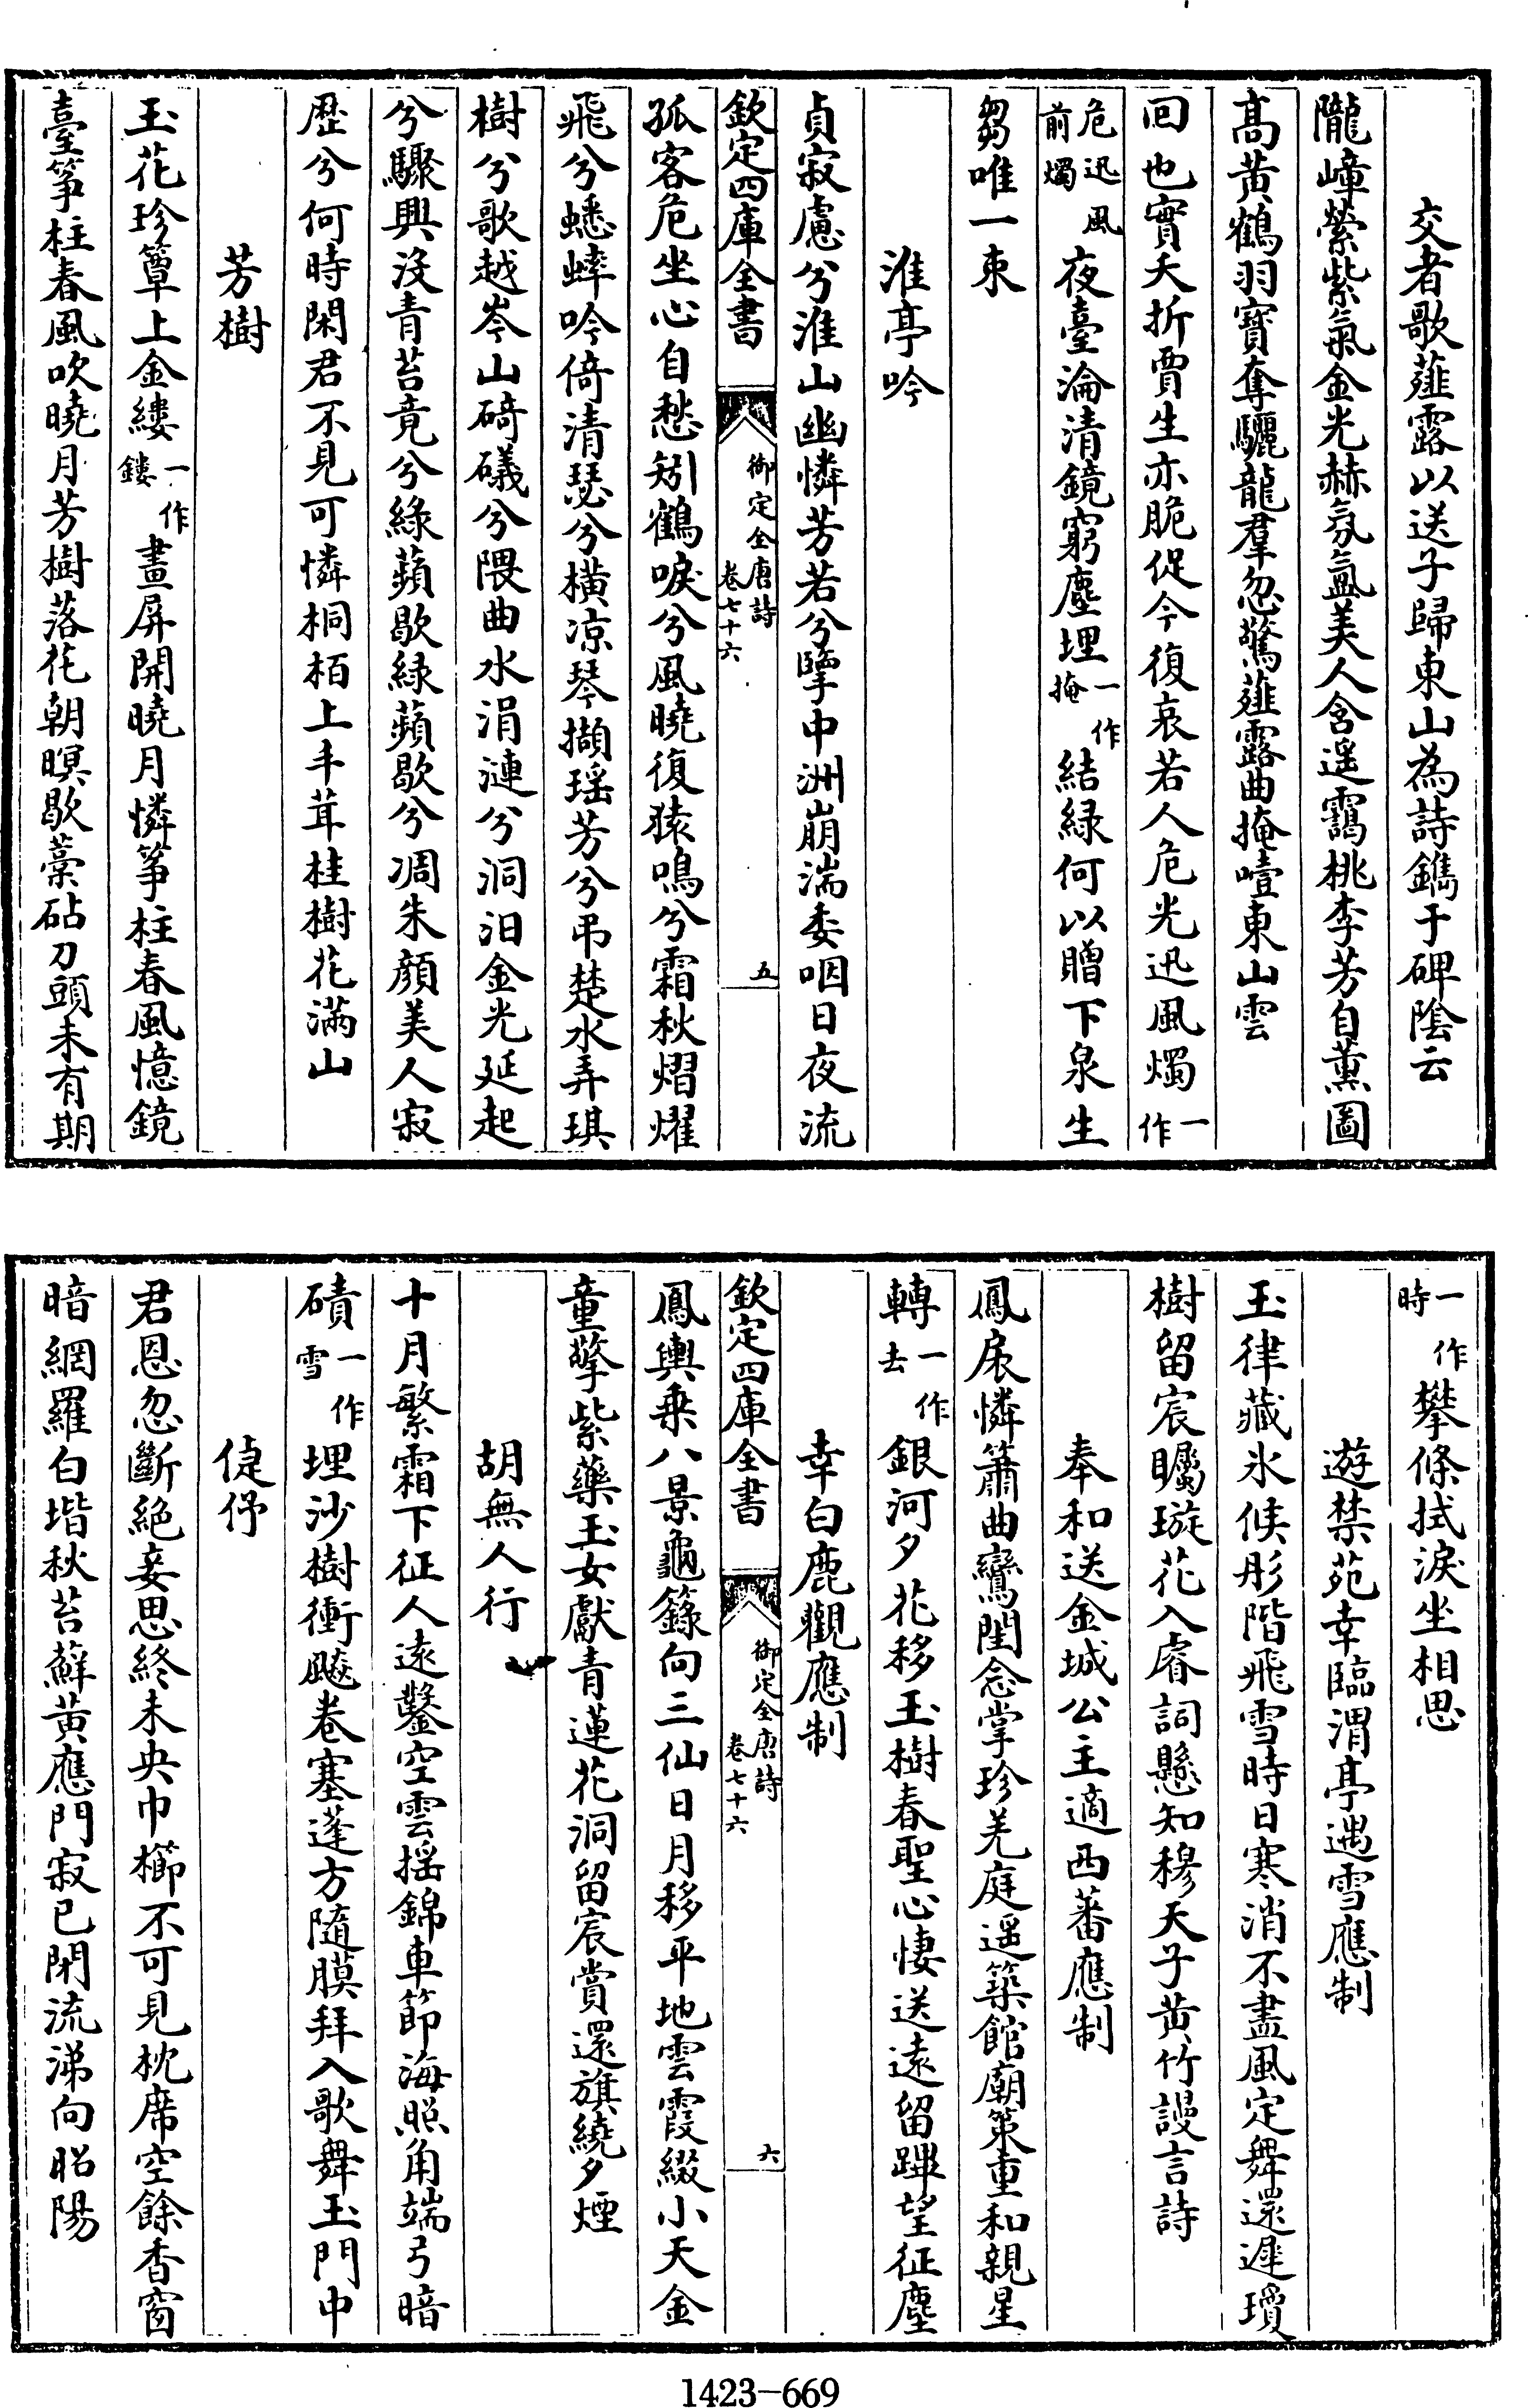 交者歌薤露以送子歸東山為詩鐫于碑陰云
隴嶂縈紫氣金光赫氛氲美人含遥靄桃李芳自薰圖
髙黄鶴羽寳奪驪龍羣忽驚薤露曲掩噎東山雲
回也實夭折賈生亦脆促今復哀若人危光迅風燭一作
危迅風前燭夜臺淪清鏡窮塵埋一作掩結緑何以贈下泉生
芻唯一束
淮亭吟
貞寂慮兮淮山幽憐芳若兮擥中洲崩湍委咽日夜流
欽定四庫全書 御定全唐詩卷七十六 五
孤客危坐心自愁矧鶴唳兮風曉復猿鳴兮霜秋熠燿
飛兮蟋蟀吟倚清瑟兮横凉琴擷瑶芳兮吊楚水弄琪
樹兮歌越岑山碕礒兮隈曲水涓漣兮洞汩金光延起
兮驟興没青苔竟兮緑蘋歇緑蘋歇兮凋朱顔美人寂
歴兮何時閑君不見可憐桐栢上丰茸桂樹花滿山
芳樹
玉花珍簟上金縷一作鏤畫屏開曉月憐筝柱春風憶鏡
臺筝柱春風吹曉月芳樹落花朝暝歇藁砧刀頭未有期
一作時攀條拭淚坐相思
遊禁苑幸臨渭亭遇雪應制
玉律藏氷候彤階飛雪時日寒消不盡風定舞還遲瓊
樹留宸矚璇花入睿詞懸知穆天子黄竹謾言詩
奉和送金城公主適西蕃應制
鳳扆憐簫曲鸞閨念掌珍羌庭遥築館廟策重和親星
轉一作去銀河夕花移玉樹春聖心悽送遠留蹕望征塵
幸白鹿觀應制
欽定四庫全書 御定全唐詩卷七十六 六
鳳輿乗八景龜籙向三仙日月移平地雲霞綴小天金
童擎紫藥玉女獻青蓮花洞留宸賞還旗繞夕煙
胡無人行
十月繁霜下征人遠鑿空雲揺錦車節海照角端弓暗
磧一作雪埋沙樹衝飈卷塞蓬方隨膜拜入歌舞玉門中
倢伃
君恩忽斷絶妾思終未央巾櫛不可見枕席空餘香窗
暗網羅白堦秋苔蘚黄應門寂已閉流涕向昭陽
1423-669